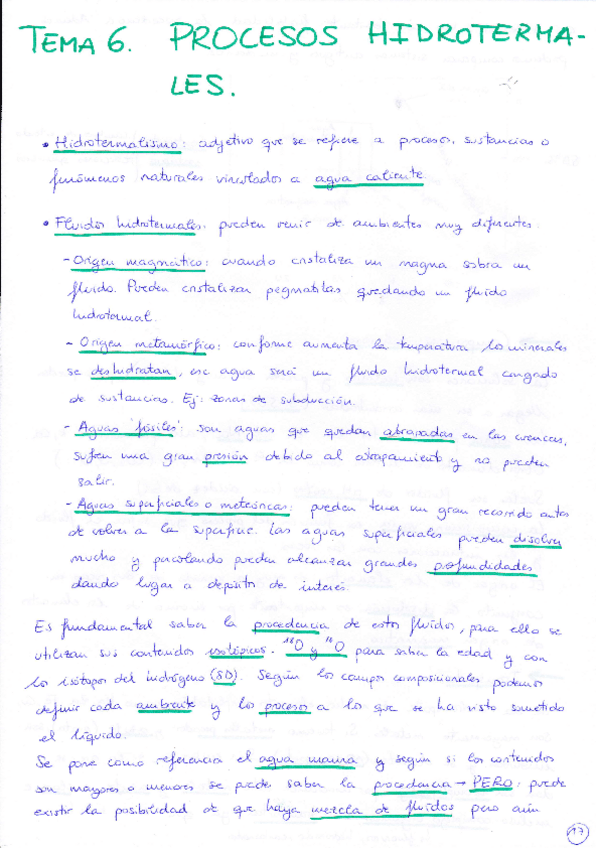 TEMA 6. PROCESOS HIDROTERMA-
LES.
• Hidrotermalismo: adjetivo que se refiere a procesos, sustancias o
fenómenos naturales vinculados a agua caliente
• Fluidos hidrotermales: pueden venir de ambientes muy diferentes.
- Origen magmático: cuando cristaliza un magma sobra un
fluido. Pueden cristalizar pegmatitas quedando un fluido
hidrotermal.
- Origen metamórfico: conforme aumenta la temperatura los minerales
se deshidratan, ese agua será un fluido hidrotermal cargado
de sustancias. Ej: zonas de subducción.
- Aguas 'fósiles': son aguas que quedan atrapadas en las cuencas,
sufren una gran presión debido al atrapamiento y no pueden
salir.
- Aguas superficiales o meteóricas: pueden tener un gran recorrido antes
de volver a la superficie. Las aguas superficiales pueden disolver
mucho y percolando pueden alcanzar grandes profundidades
dando lugar a depósito de interés.
Es fundamental saber la procedencia de estos fluidos, para ello se
utilizan sus contenidos isotópicos. ¹⁸O y ¹⁶O para saber la edad y con
los isótopos del hidrógeno (δD). Según los campos composicionales podemos
definir cada ambiente y los procesos a los que se ha visto sometido
el líquido.
Se pone como referencia el agua marina y según si los contenidos
son mayores o menores se puede saber la procedencia → PERO: puede
existir la posibilidad de que haya mezcla de fluidos pero aún
17